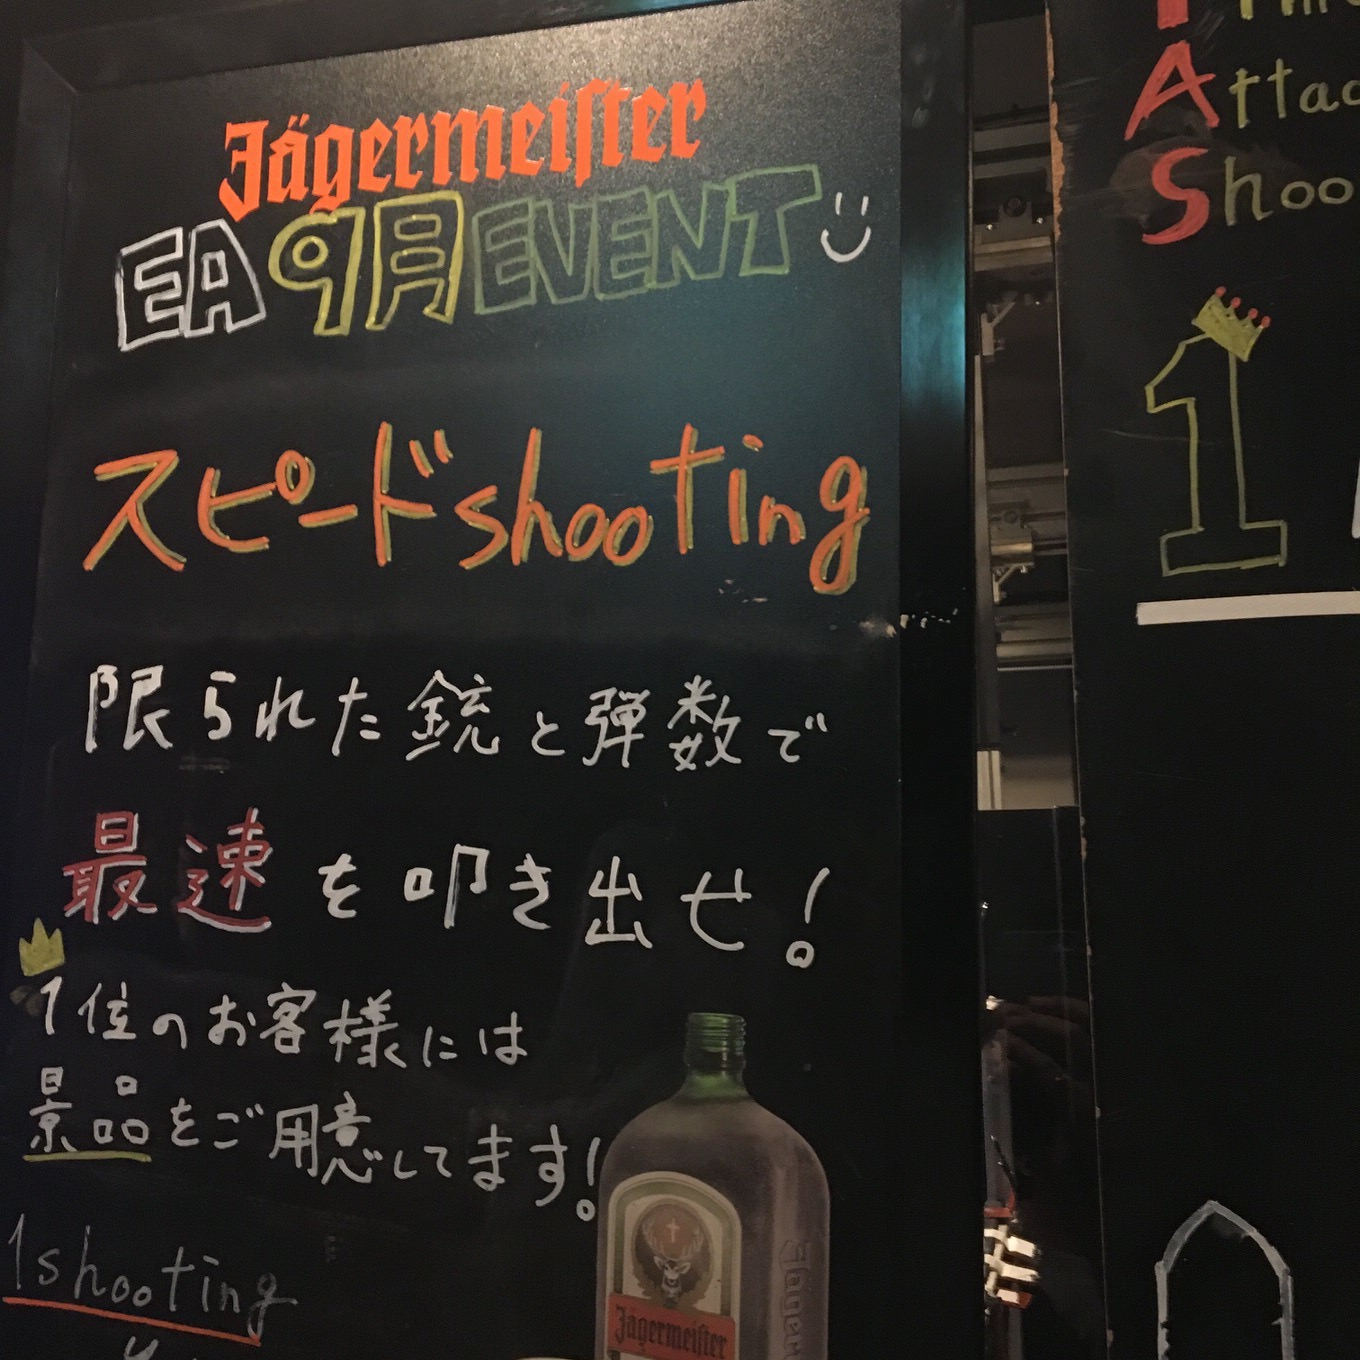 Jägermeister
EA 9月 EVENT
スピードshooting
限られた銃と弾数で
最速を叩き出せ!
1位のお客様には
景品をご用意してます!
1shooting
Jägermeister
A Attac
S Shoo
1